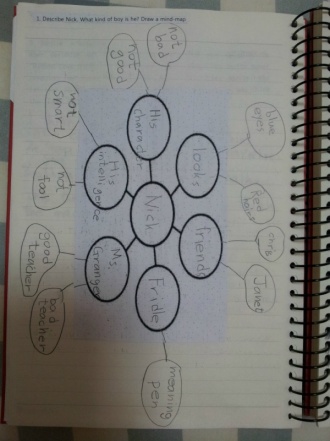 1. Describe Nick. What kind of boy is he? Draw a mind map.
not
bad
not
good
His
character
looks
blue
eyes
Reed
friends
chris
Janet
Nick
His
intelligence
not
smart
not
fool
Ms.
Granger
good
teacher
bad
teacher
Fridle
meaning
pen